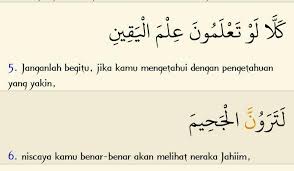 كَلَّا لَوْ تَعْلَمُونَ عِلْمَ الْيَقِينِ
5. Janganlah begitu, jika kamu mengetahui dengan pengetahuan
yang yakin,
لَتَرَوُنَّ الْجَحِيمَ
6. niscaya kamu benar-benar akan melihat neraka Jahiim,